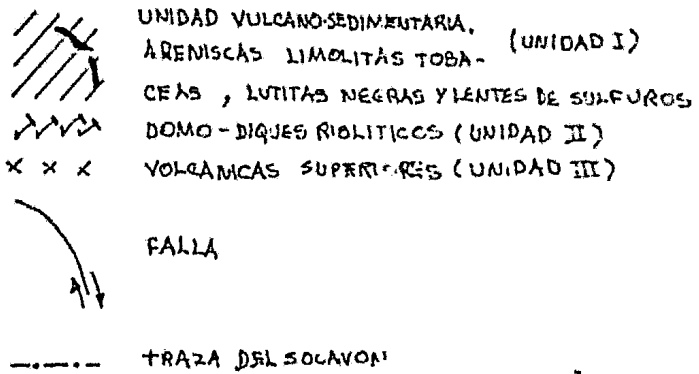 UNIDAD VULCANO-SEDIMENTARIA.
ARENISCAS LIMOLITAS TOBA- (UNIDAD I)
CEAS , LUTITAS NEGRAS Y LENTES DE SULFUROS
DOMO-DIQUES RIOLITICOS (UNIDAD II)
VOLCANICAS SUPERIORES (UNIDAD III)
FALLA
TRAZA DEL SOCAVON